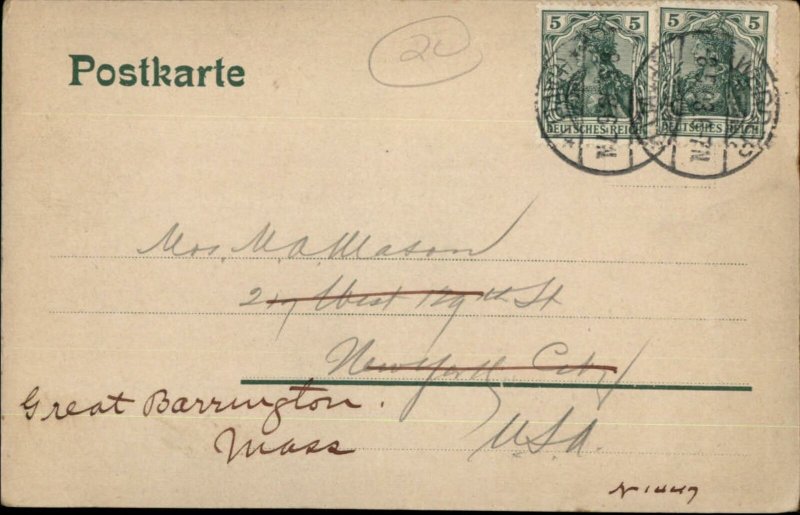 Postkarte
5 5 5 5
DEUTSCHES REICH DEUTSCHES REICH
Mrs. M. A. Mason
217 West 129th St
New York City
Great Barrington.
Mass
U.S.A.